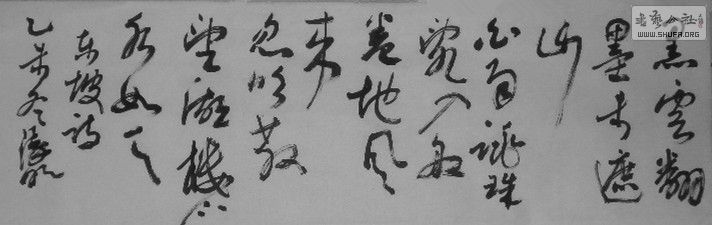 黑雲翻
墨未遮
山
白雨跳珠
亂入船
卷地風
來
忽吹散
望湖樓下
水如天
東坡詩
乙未冬
書藝公社
WWW.SHUFA.ORG